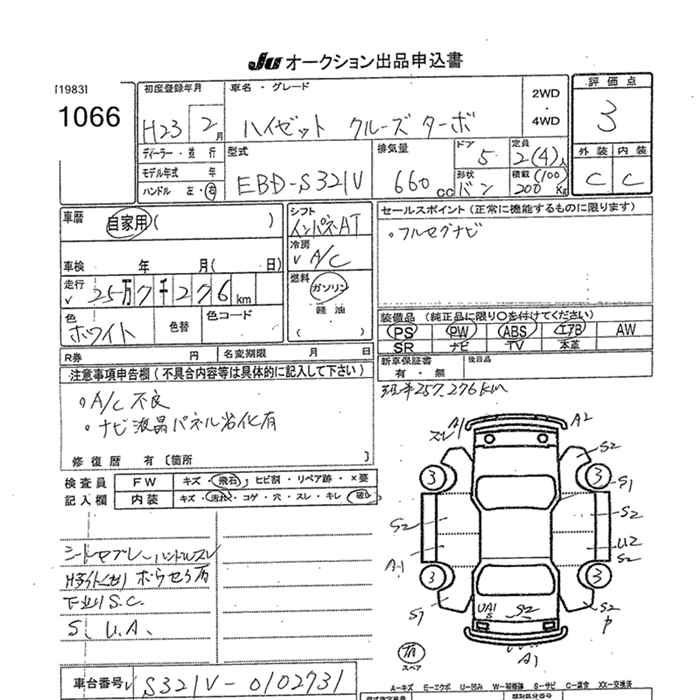 Ju オークション出品申込書
[1983]
1066
初度登録年月
H23 2月
車名・グレード
ハイゼット クルーズ ターボ
2WD
・
4WD
評価点
3
外装 内装
C C
ディーラー・並行
モデル年式 年
ハンドル 左・右
型式
EBD-S321V
排気量
660cc
ドア
5
形状
バン
定員
2(4)人
積載(100)
200Kg
車歴
自家用( )
車検 年 月( 日)
走行
v 25万7千276km
色
ホワイト
色替
色コード
シフト
インパネAT
冷房
v A/C
燃料
ガソリン
軽油
セールスポイント(正常に機能するものに限ります)
・フルセグナビ
装備品(純正品に限り○を付けてください)
PS PW ABS エアB AW
SR ナビ TV 本革
新車保証書
有・無
後日品
R券 円
名変期限 月 日
注意事項申告欄(不具合内容等は具体的に記入して下さい)
・A/C 不良
・ナビ液晶パネル劣化有
修復歴 有〔箇所 〕
現車257,276km
検査員
記入欄
FW キズ・飛石・ヒビ割・リペア跡・×要
内装 キズ・汚れ・コゲ・穴・スレ・キレ・破レ
シートヤブレ ハンドルスレ
下廻りS.C.
S、U.A、
車台番号 S321V-0102731
スレ A1 A2
S2
3 3
S1
S2 S2
A1 U2
S2
3 3
S1 UA1 S S2 S2
P
スペア
A1
A-キズ E-エクボ U-凹み W-補修跡 S-サビ C-腐食 XX-交換済